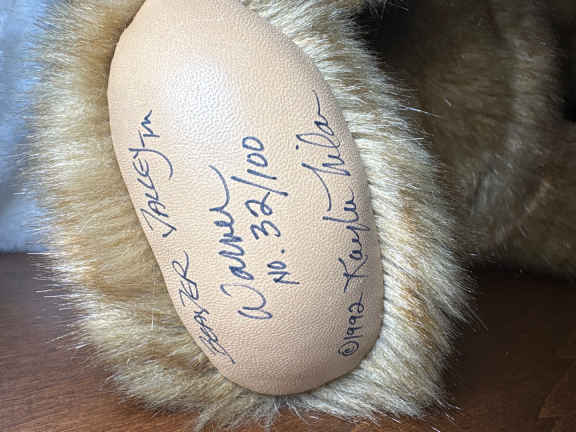 BEAVER VALLEY TM
Warner
NO. 32/100
©1992 Kaylee Nilson